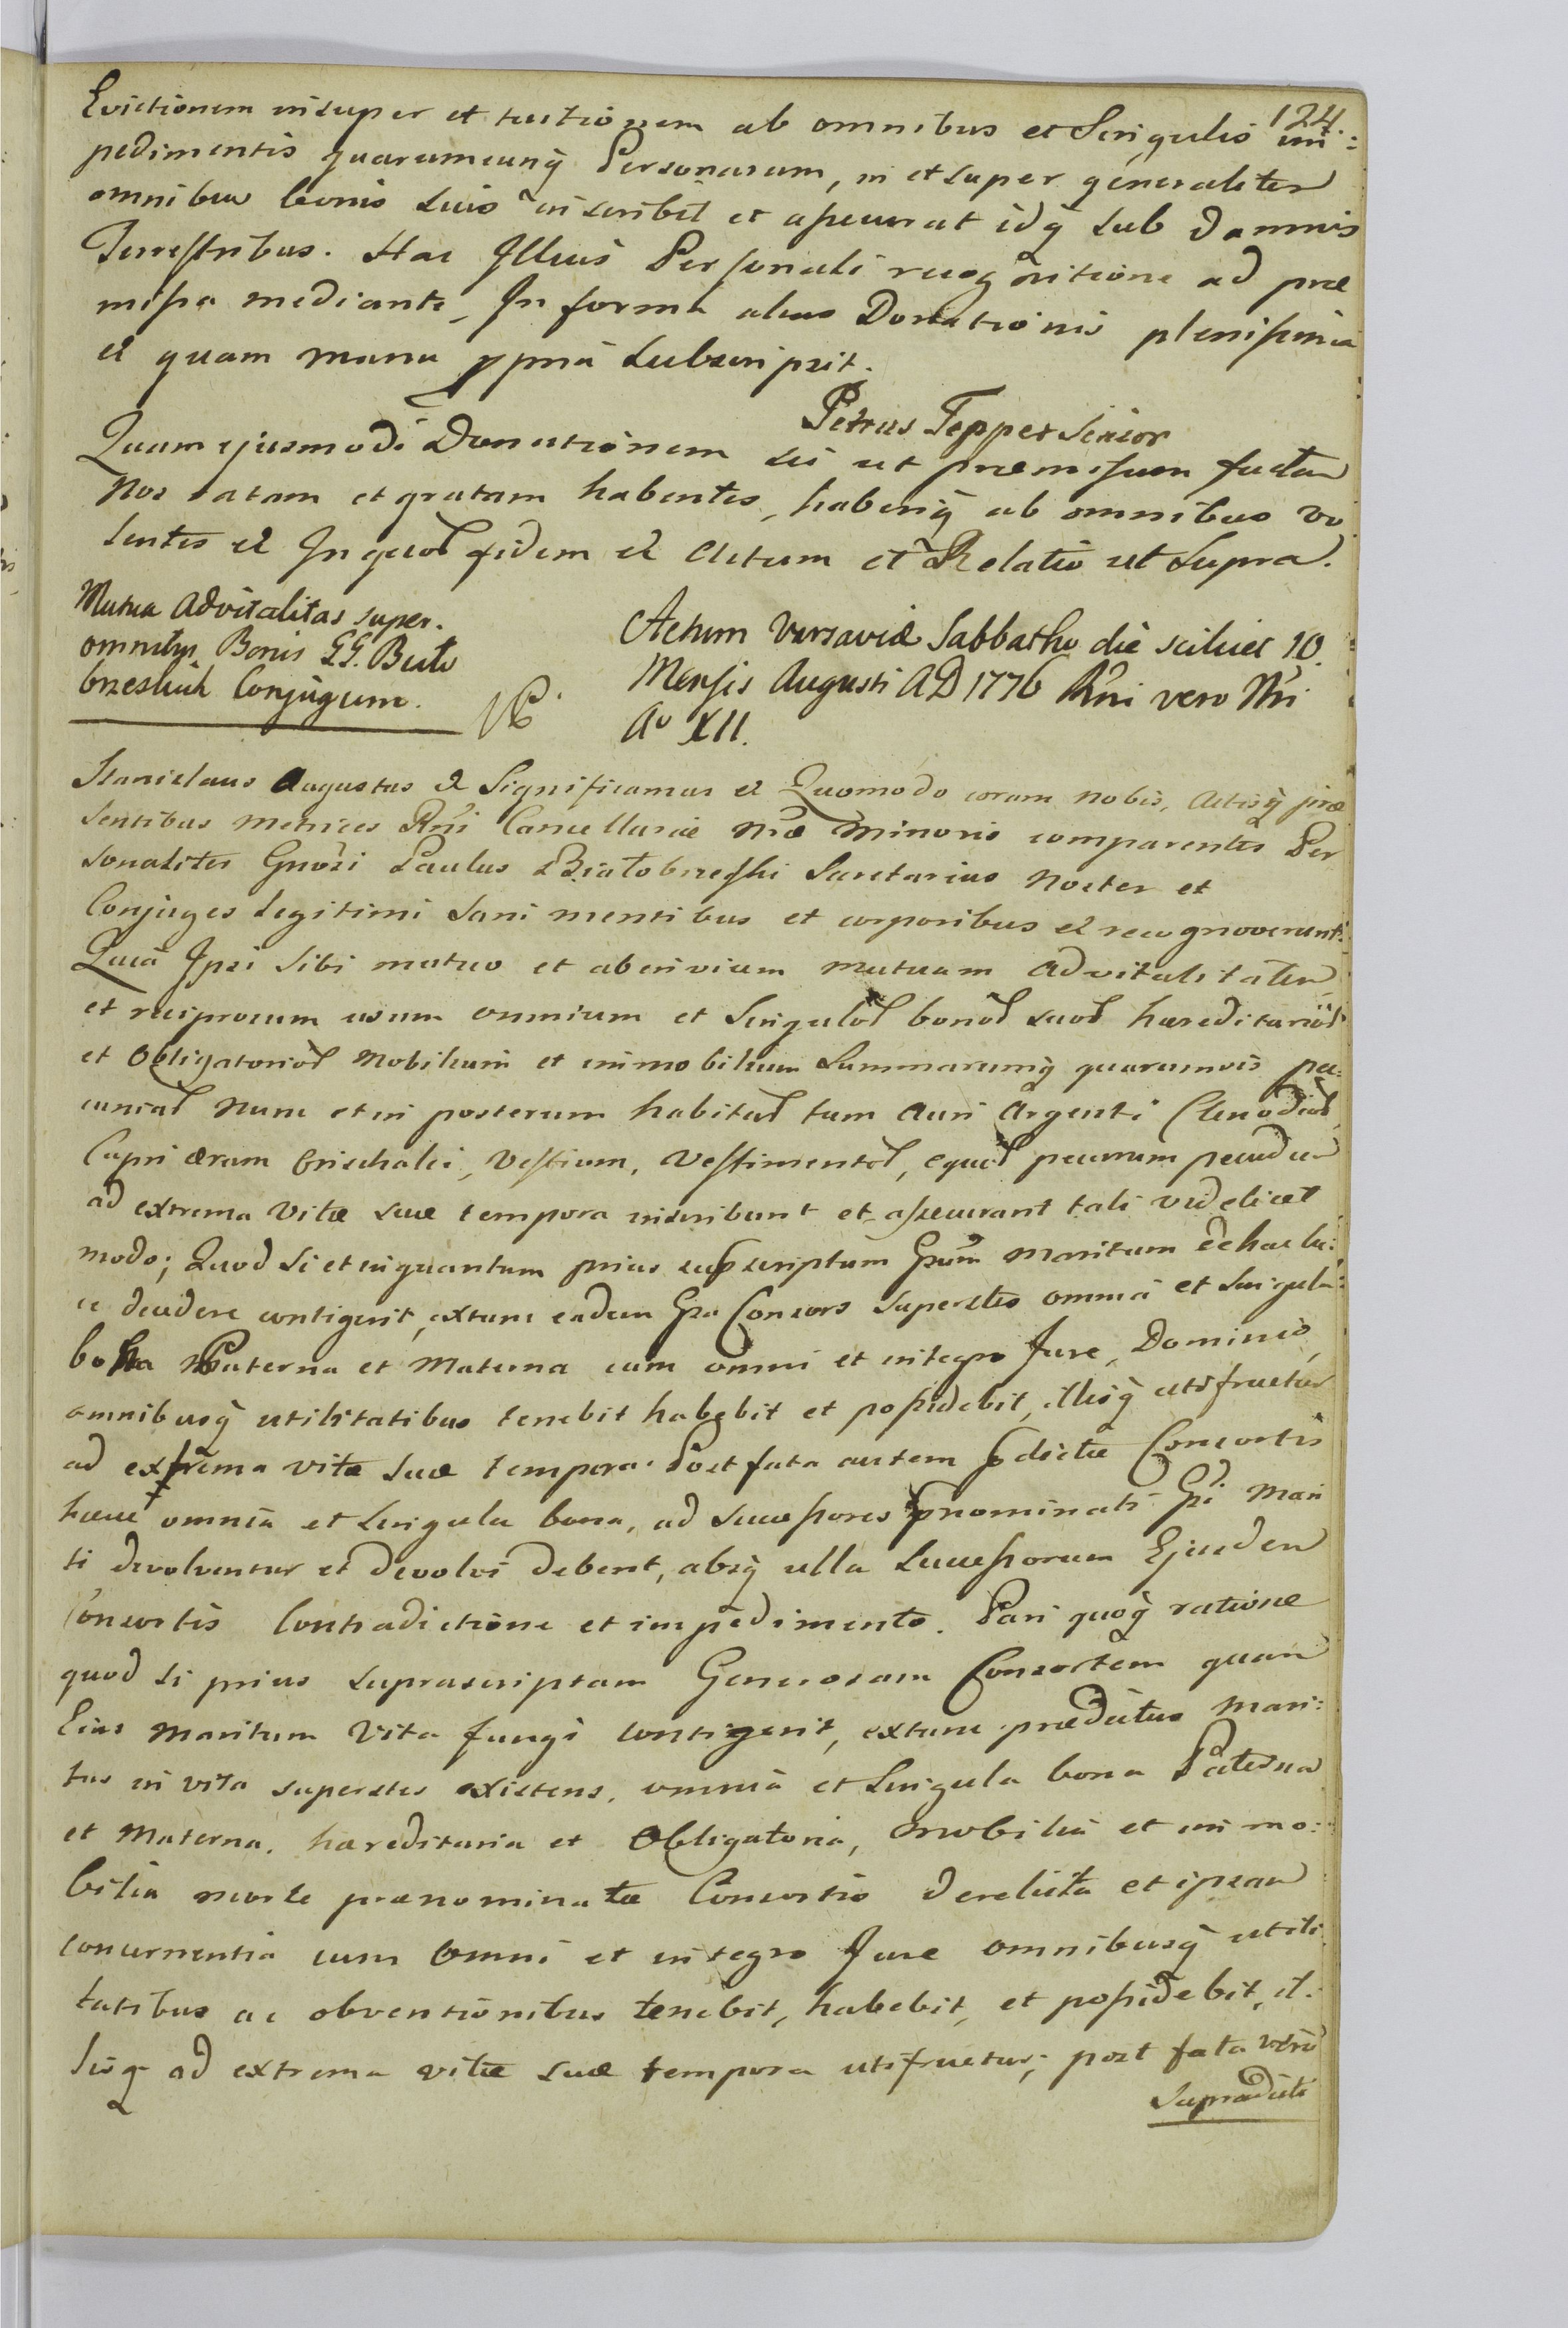 124.
Evictionem insuper et tuitionem ab omnibus et Singulis im:
pedimentis quarumcunq̀ Personarum, in et super generaliter
omnibus bonis suis inscribit et assecurat idq̀ sub damnis
Terrestribus. Hac Illius Personali recognitione ad præ
missa mediante, In forma alias Donationis plenissima
&c quam manu ppria subscripsit.
Petrus Tepper Senior
Quam ejusmodi Donationem sic ut præmissum factam
Nos ratam et gratam habentes, haberiq̀ ab omnibus vo
lentes &c In quor fidem &c Actum et Relatio ut Supra.
Mutua Advitalitas super.
omnibus Bonis GG. Biało
brzeskich Conjugum.
Actum Varsaviæ Sabbatho die scilicet 10.
Mensis Augusti AD 1776 Rñi vero Nři
Aº XII.
Stanislaus Augustus &c Significamus &c Quomodo coram nobis, Actisq̀ præ
sentibus Metrices Rñi Cancellariæ Nræ Minoris comparentes Per
sonaliter Gnosi Paulus Białobrzeski Secretarius Noster et
Conjuges Legitimi Sani mentibus et corporibus &c recognoverunt:
Quia Ipsi sibi mutuo et abinvicem mutuam advitalitatem
et reciprocum usum omnium et Singulor bonor suor hæreditarior
et Obligatorior Mobilium et immobilium Summarumq̀ quarumvis pe:
cuniar nunc et in posterum habitar tum Auri Argenti Clenodior,
Cupri æram Orichalci, Vestium, Vestimentor, equor pecorum pecudum
ad extrema Vitæ suæ tempora inscribunt et assecurant tali videlicet
modo; Quod si et inquantum prius suprascriptum Gsum Maritum de hac lu:
ce decedere contigerit, extunc eadem Gsa Consors Superstes omnia et Singula
bona Paterna et Materna cum omni et integro Jure, Dominio,
omnibusq̀ utilitatibus tenebit habebit et possidebit, illisq̀ utifruetur
ad extrema vitæ suæ tempora. Post fata autem sdictæ Consortis
hæc omnia et Singula bona, ad Successores prnominati Gsi Mari
ti devolventur et devolvi debent, absq̀ ulla Successorum Ejusdem
Consortis Contradictione et impedimento. Pari quoq̀ ratione
quod si prius suprascriptam Generosam Consortem quam
Eius Maritum Vita fungi contigerit, extunc prædictus Mari:
tus in vita superstes existens, omnia et Singula bona Paterna
et Materna, hæreditaria et Obligatoria, Mobilia et immo:
bilia morte prænominatæ Consortis derelicta et ipsam
concernentia cum omni et integro Jure omnibusq̀ utili
tatibus ac obventionibus tenebit, habebit, et possidebit, il:
lisq̀ ad extrema vitæ suæ tempora utifruetur; post fata vero
Supradicti